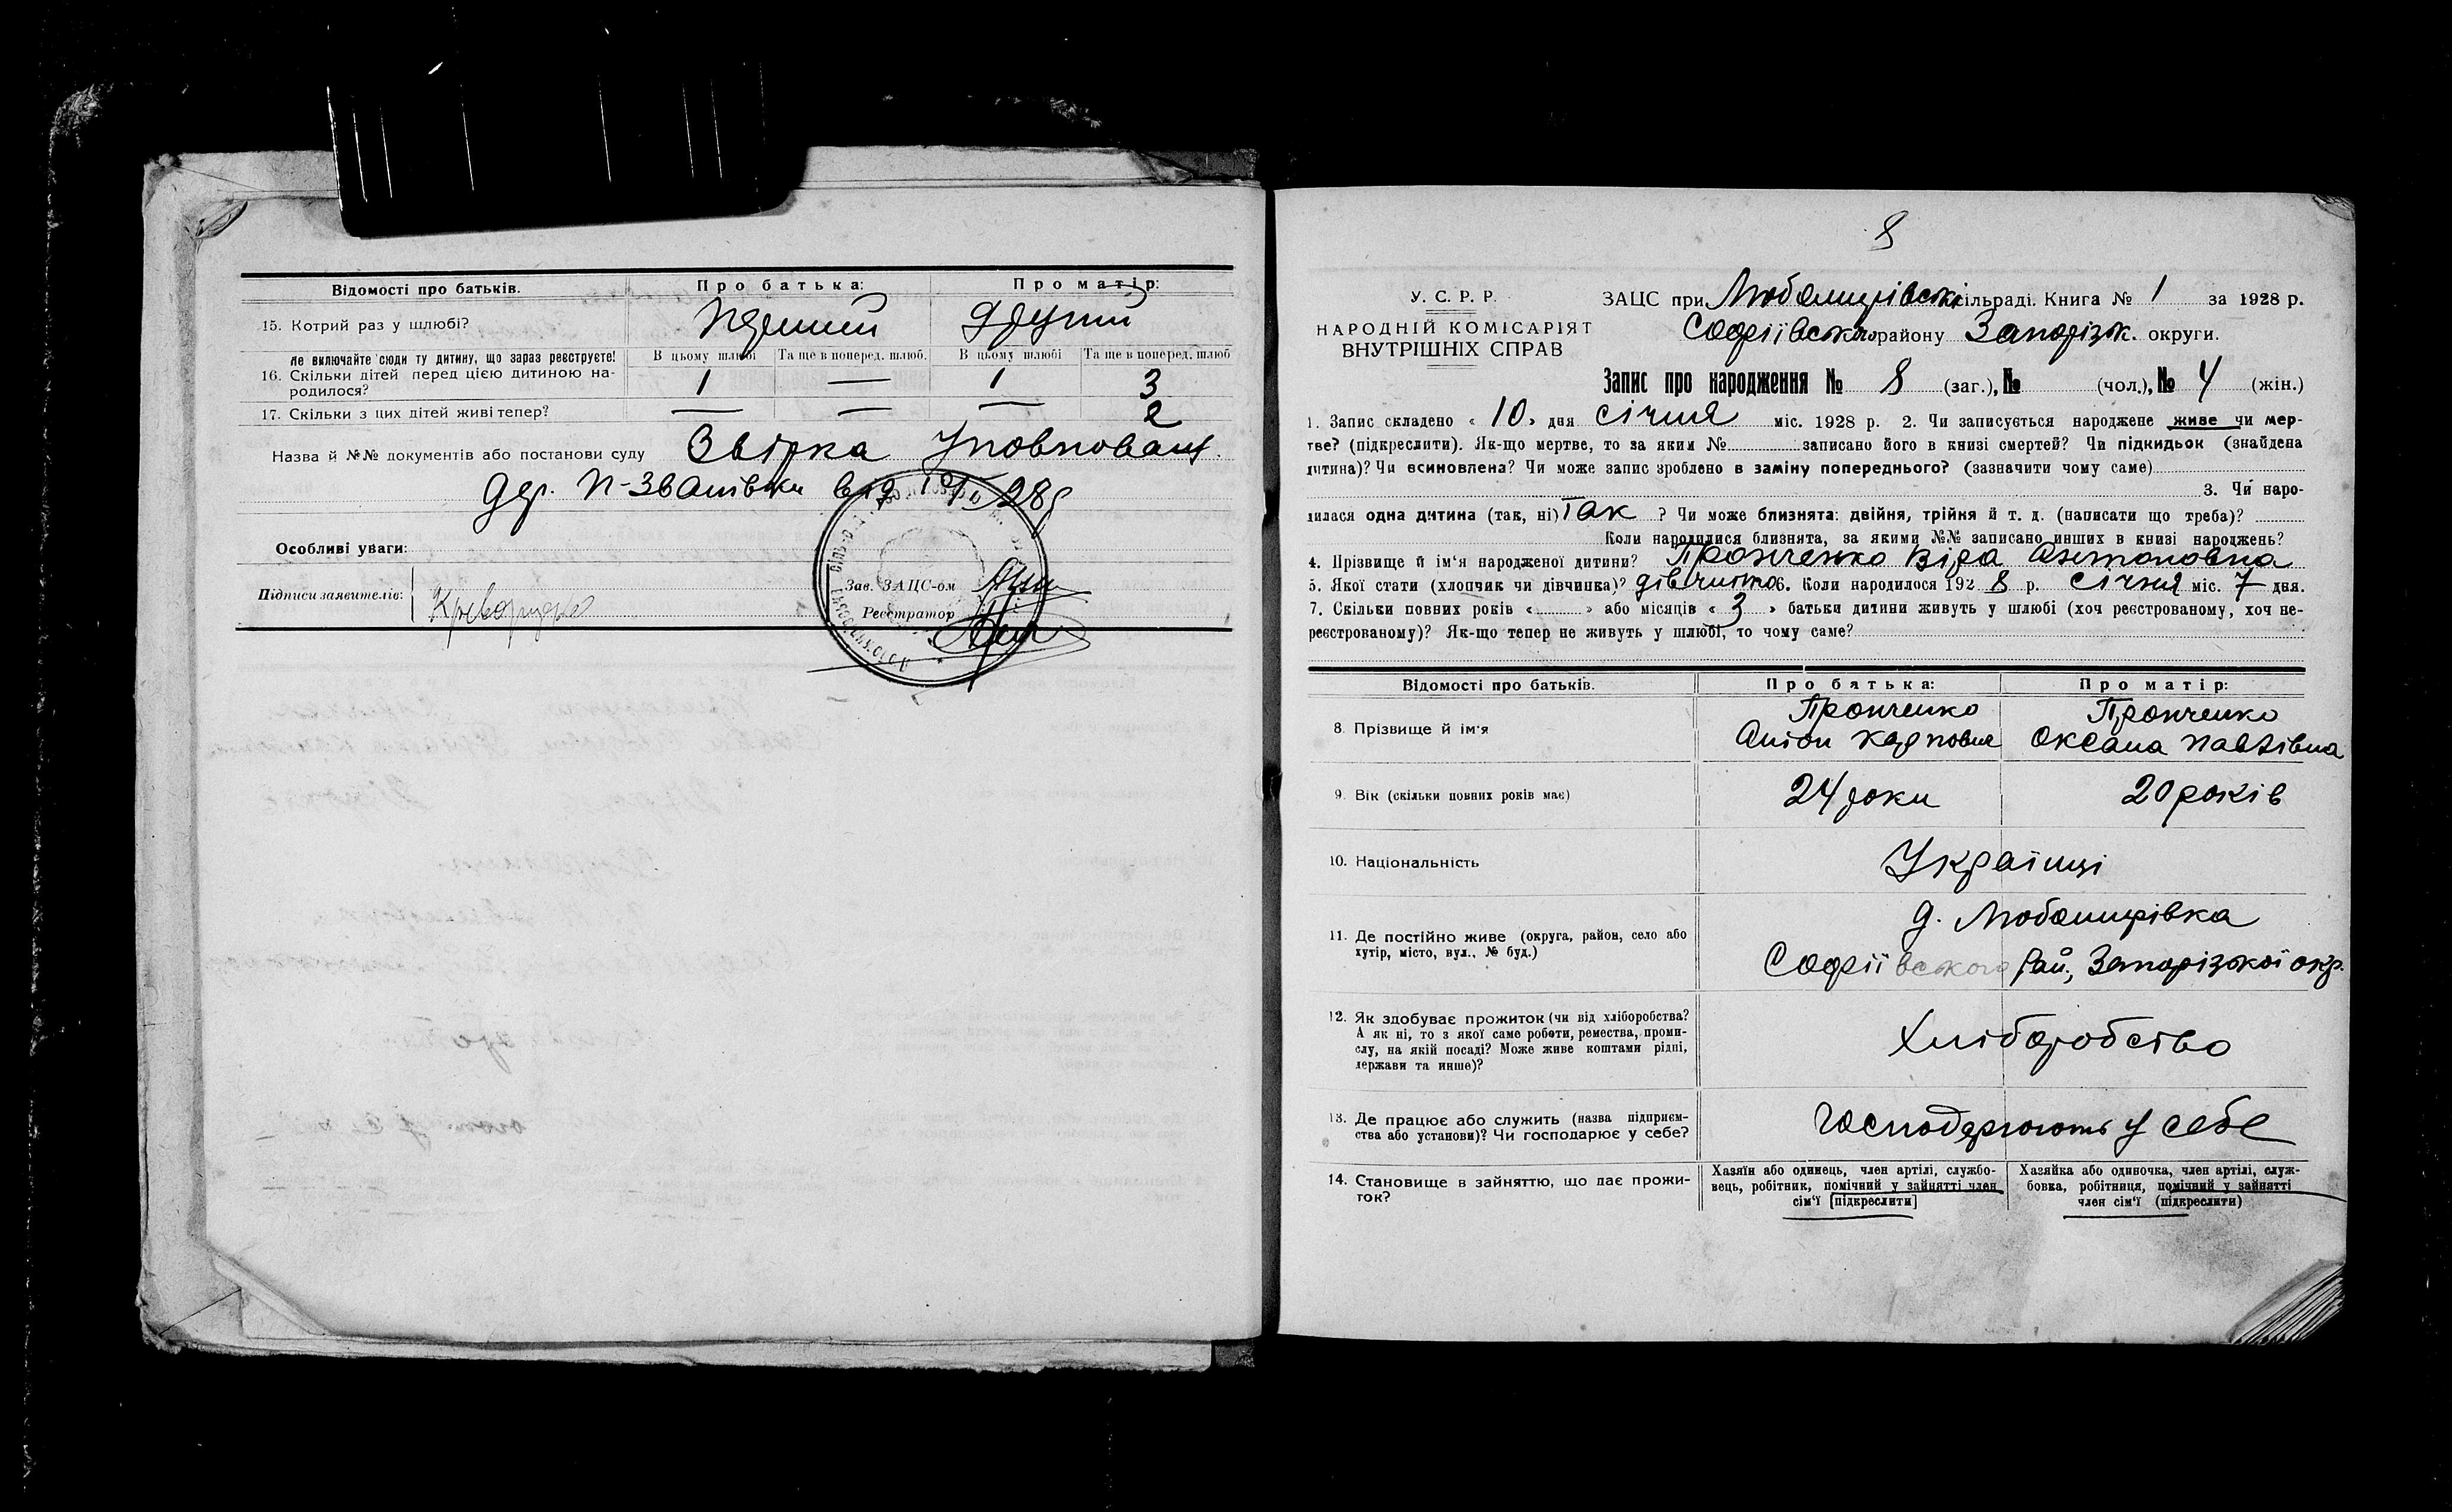 Відомості про батьків. Про батька: Про матір:
15. Котрий раз у шлюбі? Перший другий
не включайте сюди ту дитину, що зараз реєструєте! В цьому шлюбі Та ще в поперед. шлюб. В цьому шлюбі Та ще в поперед. шлюб
16. Скільки дітей перед цією дитиною на-
родилося? 1 — 1 3
17. Скільки з цих дітей живі тепер? — — — 2
Назва й №№ документів або постанови суду Звірка Уповноваж.
дер. П-Званівки
Особливі уваги:
Підписи заявителів:
Зав. ЗАЦС-ом
Реєстратор
8
У. С. Р. Р.
НАРОДНІЙ КОМІСАРІЯТ
ВНУТРІШНІХ СПРАВ
ЗАЦС при Любомирівські сільраді. Книга № 1 за 1928 р.
Софіївського району Запоріжж. округи.
Запис про народження № 8 (заг.), № (чол.), № 4 (жін.)
1. Запис складено « 10 » дня січня міс. 1928 р. 2. Чи записується народжене живе чи мер-
тве? (підкреслити). Як-що мертве, то за яким № записано його в книзі смертей? Чи підкидьок (знайдена
дитина)? Чи всиновлена? Чи може запис зроблено в заміну попереднього? (зазначити чому саме)
3. Чи наро-
дилася одна дитина (так, ні) Так ? Чи може близнята: двійня, трійня й т. д. (написати що треба)?
Коли народилися близнята, за якими №№ записано инших в книзі народжень?
4. Прізвище й ім'я народженої дитини? Пронченко Віра Антоновна
5. Якої стати (хлопчик чи дівчинка)? дівчинка 6. Коли народилося 192 8 р. січня міс. 7 дня.
7. Скільки повних років « » або місяців « 3 » батьки дитини живуть у шлюбі (хоч реєстрованому, хоч не-
реєстрованому)? Як-що тепер не живуть у шлюбі, то чому саме?
Відомості про батьків. Про батька: Про матір:
Пронченко Пронченко
8. Прізвище й ім'я Антон Карпович Оксана Павлівна
9. Вік (скільки повних років має) 24 роки 20 років
10. Національність Українці
11. Де постійно живе (округа, район, село або
хутір, місто, вул., № буд.) д. Любомирівка
Софіївського рай., Запорізької окр.
12. Як здобуває прожиток (чи від хліборобства?
А як ні, то з якої саме роботи, ремества, проми-
слу, на якій посаді? Може живе коштами рідні,
держави та инше)? Хліборобство
13. Де працює або служить (назва підприєм-
ства або установи)? Чи господарює у себе? Господарюють у себе
14. Становище в зайняттю, що дає прожи-
ток?
Хазяїн або одинець, член артілі, службо-
вець, робітник, помічний у зайнятті член
сім'ї [підкреслити]
Хазяйка або одиночка, член артілі, служ-
бовка, робітниця, помічний у зайнятті
член сім'ї (підкреслити)